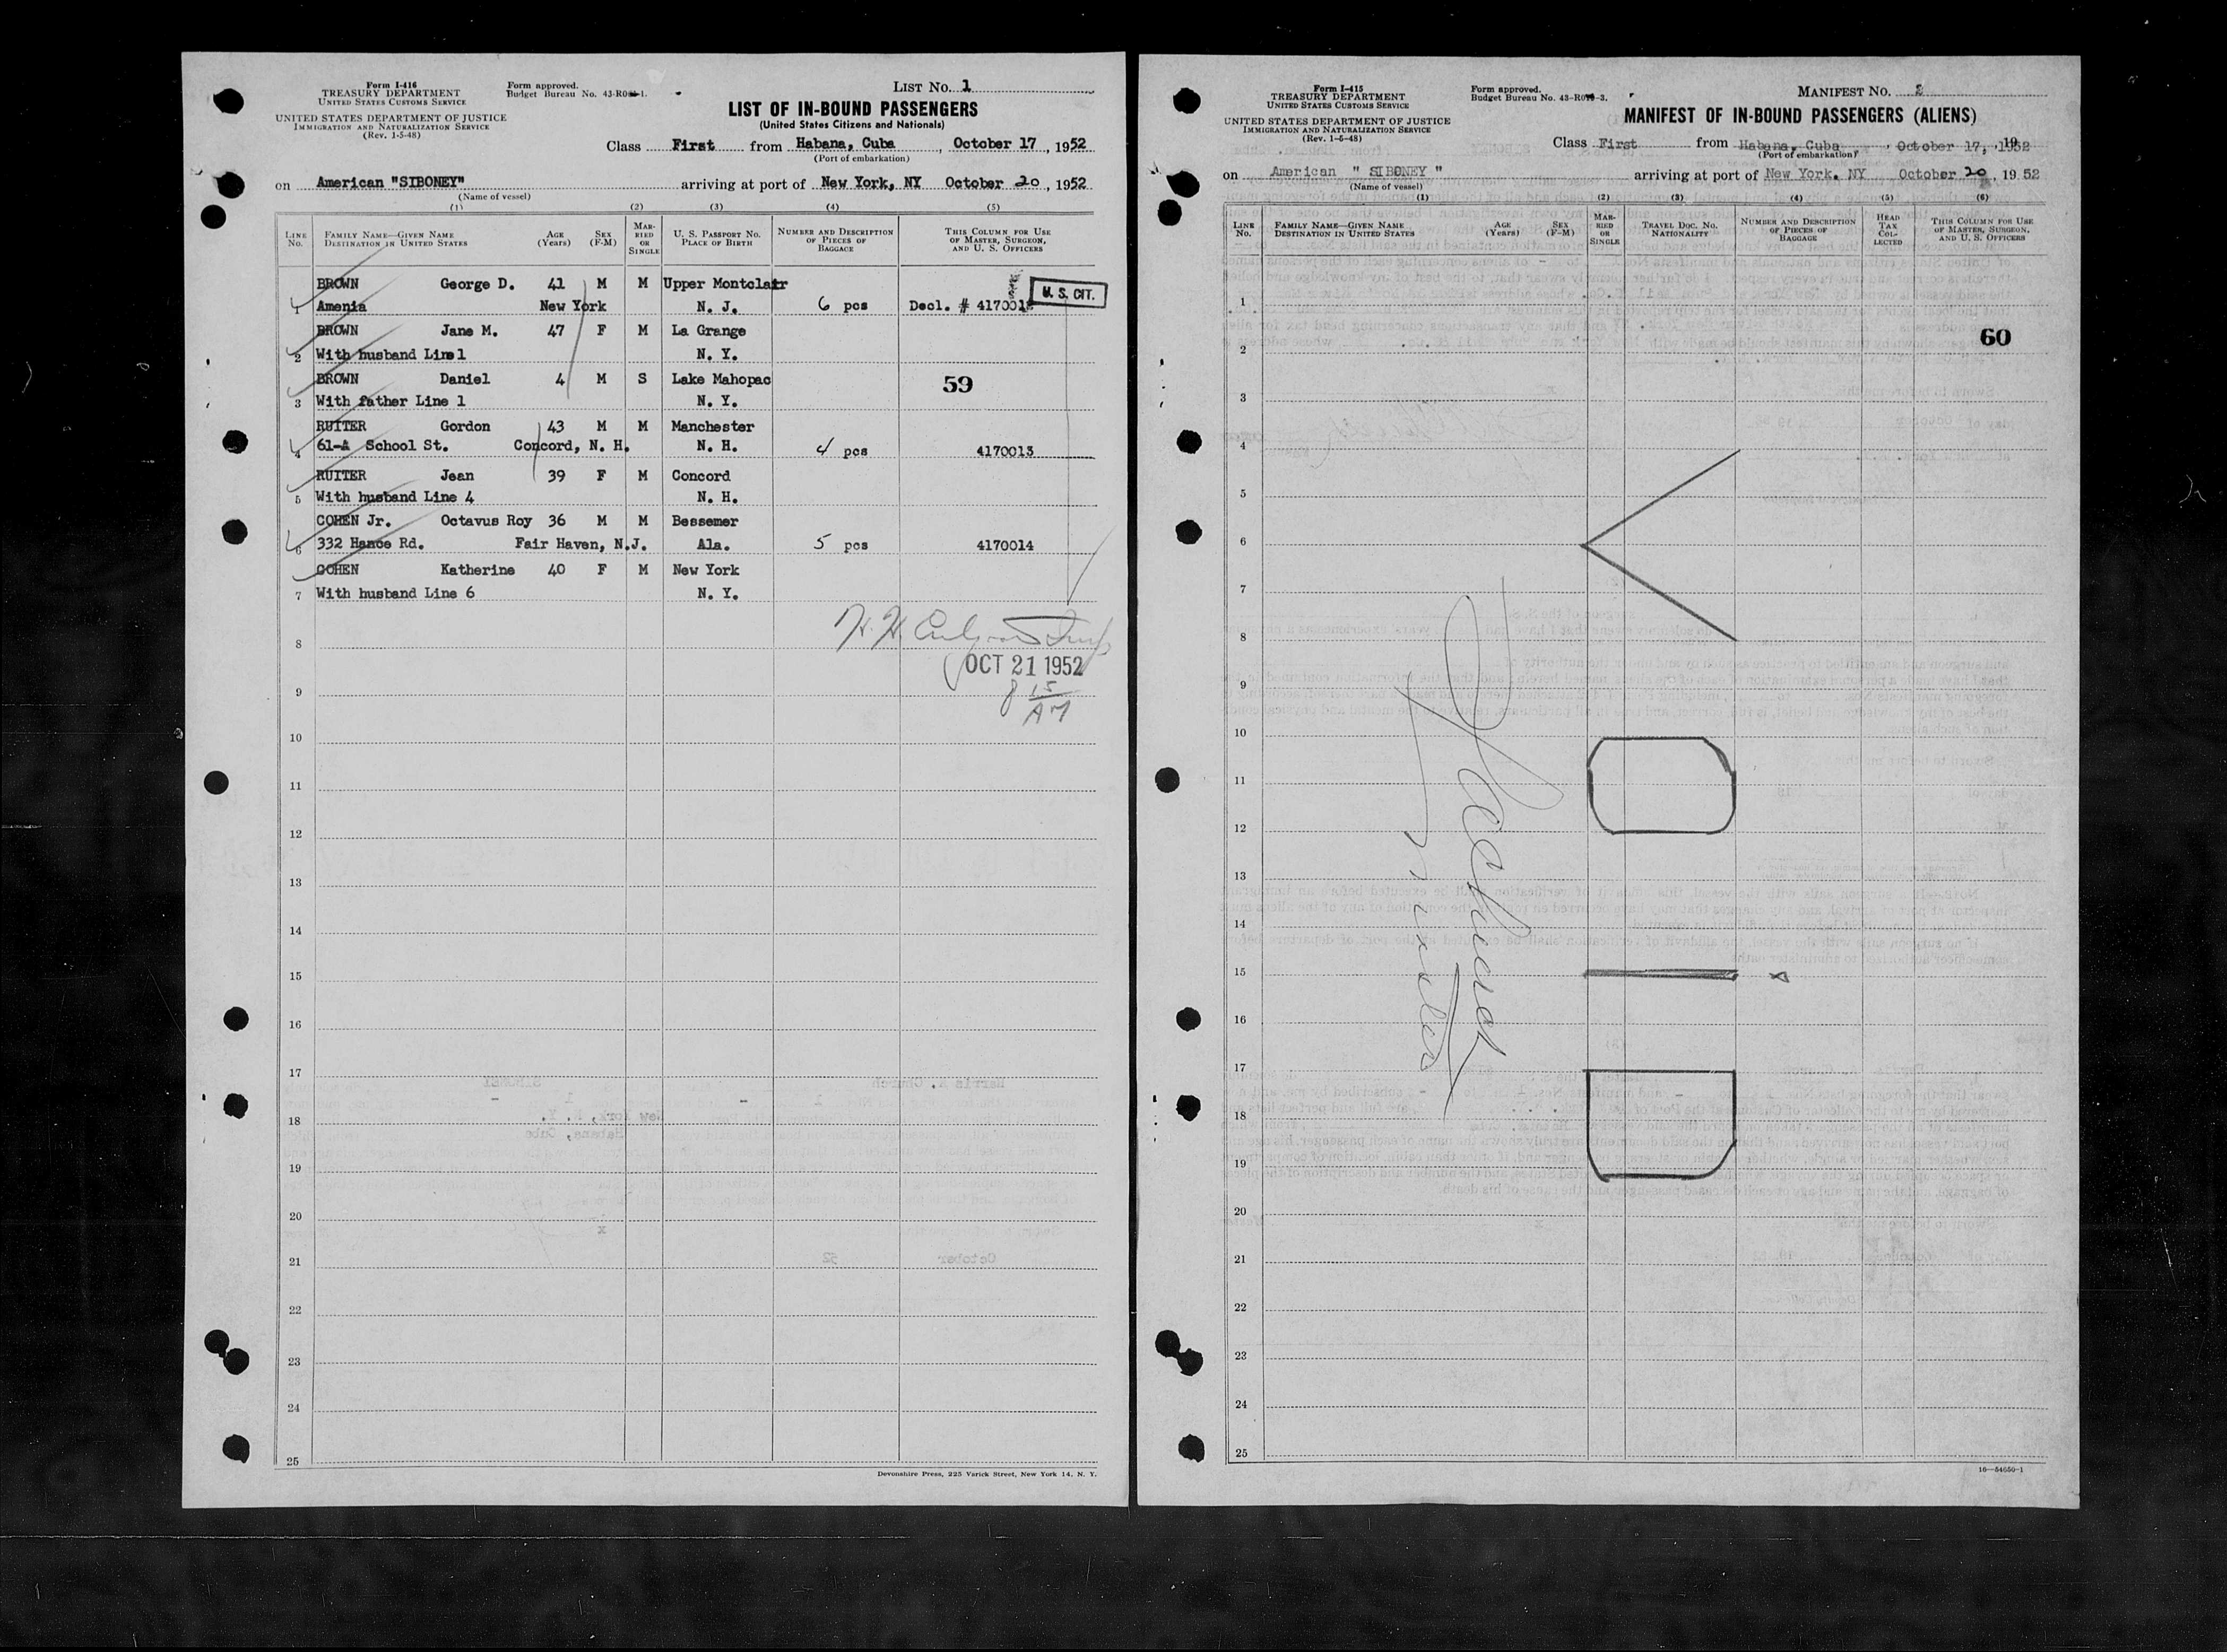 Form I-416
TREASURY DEPARTMENT
UNITED STATES CUSTOMS SERVICE
UNITED STATES DEPARTMENT OF JUSTICE
IMMIGRATION AND NATURALIZATION SERVICE
(Rev. 1-5-48)
Form approved.
Budget Bureau No.
LIST No. 1
LIST OF IN-BOUND PASSENGERS
(United States Citizens and Nationals)
Class First from Habana, Cuba, October 17, 1952
(Port of embarkation)
on American "SIBONEY" arriving at port of New York, NY October 20, 1952
(Name of vessel)
(1) (2) (3) (4) (5)
LINE No.
FAMILY NAME—GIVEN NAME
DESTINATION IN UNITED STATES
AGE (Years)
SEX (F-M)
MARRIED OR SINGLE
U. S. PASSPORT No.
PLACE OF BIRTH
NUMBER AND DESCRIPTION OF PIECES OF BAGGAGE
THIS COLUMN FOR USE OF MASTER, SURGEON, AND U. S. OFFICERS
BROWN George D. 41 M M Upper Montclair
U. S. CIT.
1 Amenia New York N. J. 6 pcs Decl. # 4170012
BROWN Jane M. 47 F M La Grange
2 With husband Line 1 N. Y.
BROWN Daniel 4 M S Lake Mahopac
59
3 With father Line 1 N. Y.
RUITER Gordon 43 M M Manchester
4 61-A School St. Concord, N. H. N. H. 4 pcs 4170013
RUITER Jean 39 F M Concord
5 With husband Line 4 N. H.
COHEN Jr. Octavus Roy 36 M M Bessemer
6 332 Hance Rd. Fair Haven, N.J. Ala. 5 pcs 4170014
COHEN Katherine 40 F M New York
7 With husband Line 6 N. Y.
8
OCT 21 1952
9
8 15
AM
10
11
12
13
14
15
16
17
18
19
20
21
22
23
24
25
Devonshire Press, 225 Varick Street, New York 14, N. Y.
Form I-415
TREASURY DEPARTMENT
UNITED STATES CUSTOMS SERVICE
UNITED STATES DEPARTMENT OF JUSTICE
IMMIGRATION AND NATURALIZATION SERVICE
Form approved.
Budget Bureau No.
MANIFEST No.
MANIFEST OF IN-BOUND PASSENGERS (ALIENS)
Class First from Habana, Cuba, October 17, 1952
(Port of embarkation)
on American "SIBONEY" arriving at port of New York, NY October 20, 1952
(Name of vessel)
(1) (2) (3) (4) (5) (6)
LINE No.
FAMILY NAME—GIVEN NAME
DESTINATION IN UNITED STATES
AGE (Years)
SEX (F-M)
MARRIED OR SINGLE
TRAVEL DOC. No.
NATIONALITY
NUMBER AND DESCRIPTION OF PIECES OF BAGGAGE
HEAD TAX COLLECTED
THIS COLUMN FOR USE OF MASTER, SURGEON, AND U. S. OFFICERS
1
60
2
3
4
5
6
7
8
9
10
11
12
13
14
15
16
17
18
19
20
21
22
23
24
25
VOID
16—54650-1